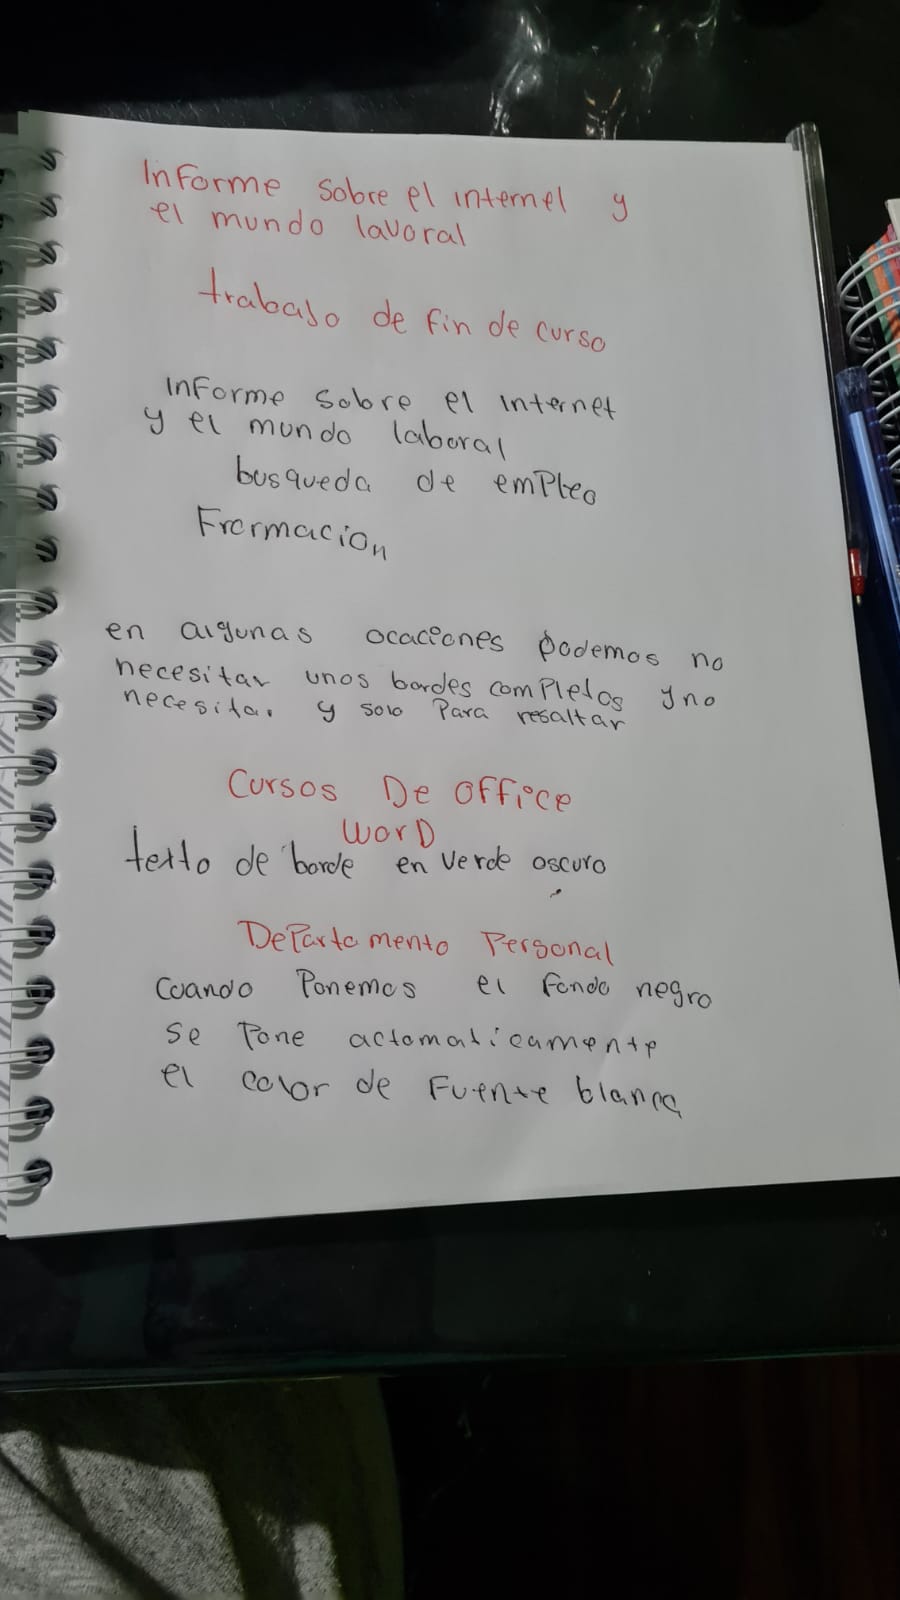 Informe sobre el internel y
el mundo lavoral
trabajo de fin de curso
informe sobre el internet
y el mundo laboral
busqueda de empleo
Frormacion
en algunas ocaciones podemos no
necesitar unos bordes completos y no
necesitar y solo para resaltar
Cursos De office
WorD
texto de borde en verde oscuro
Departamento Personal
Cuando Ponemos el fondo negro
se Pone actomaticamente
el color de Fuente blanca